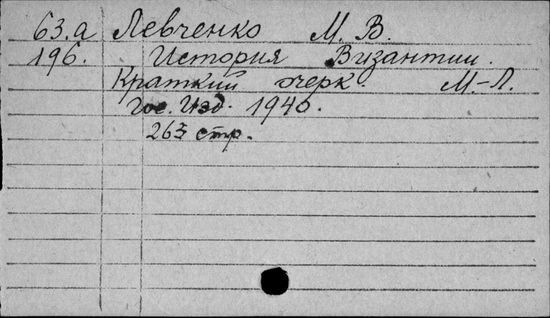 63.а Левченко М. В.
196. История Византии.
Краткий очерк. М.-Л.
Гос. Изд. 1940.
263 стр.